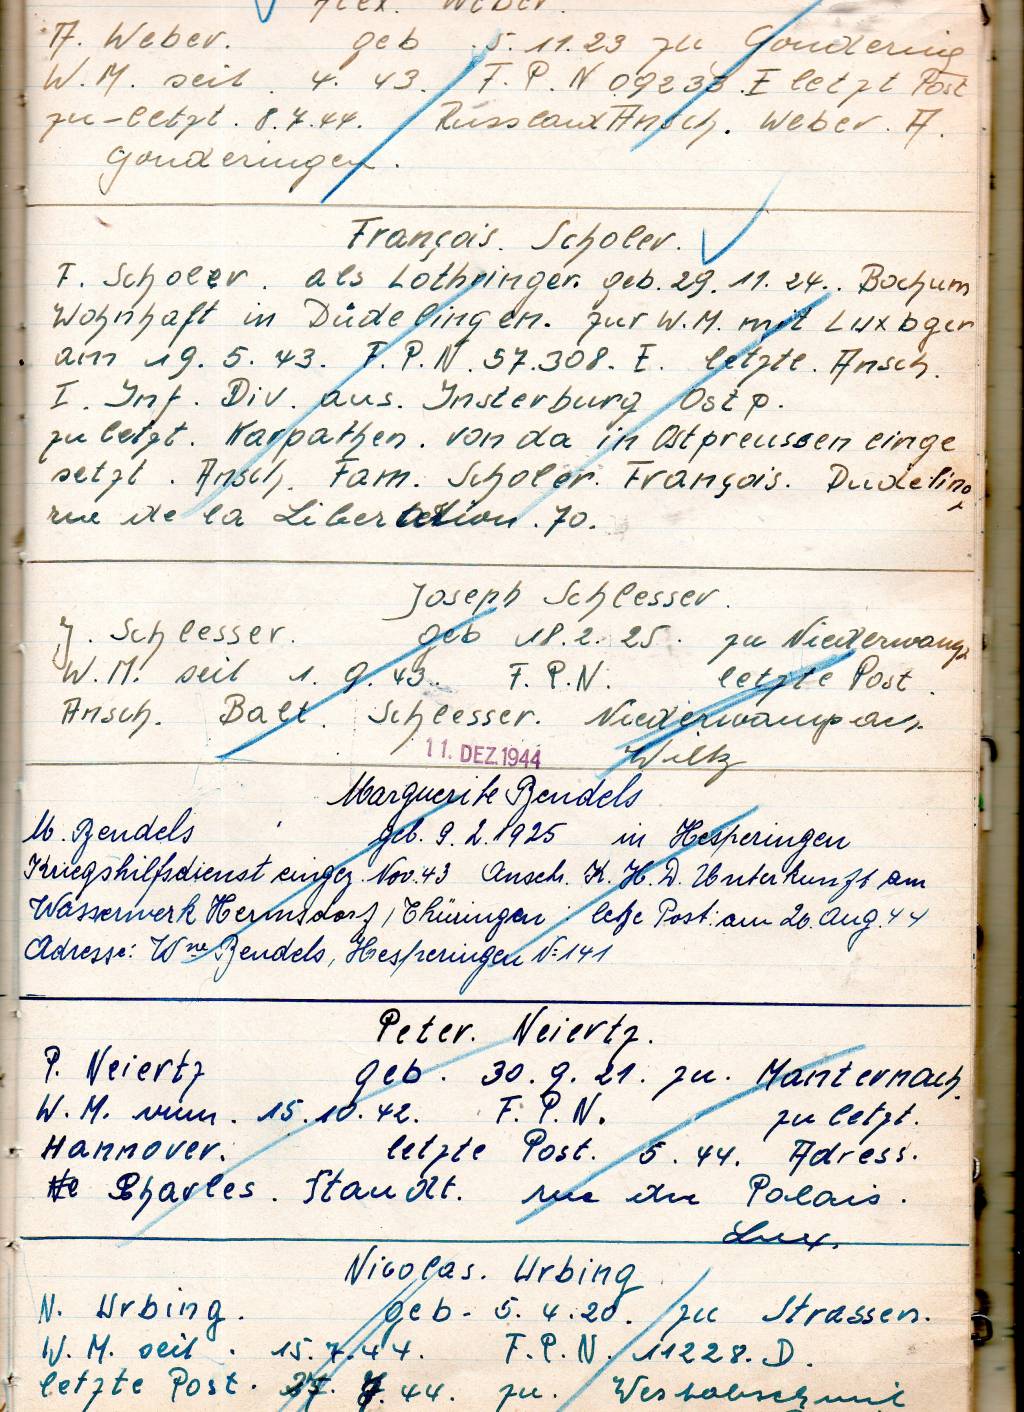 Alex. Weber.
A. Weber. geb 5.11.23 zu Gondering
W.M. seit. 4. 43. F.P.N 09233.E letzt Post
zu-letzt. 8.7.44. Russland Ansch. Weber. A.
Gonderingen.
François. Scholer.
F. Scholer. als Lothringer. geb. 29. 11. 24. Bochum
Wohnhaft in Düdelingen. zur W.M. mit Luxbger
am 19. 5. 43. F.P.N. 57.308. E. letzte. Ansch.
I. Inf. Div. aus. Insterburg Ostp.
zu letzt. Karpathen. von da in Ostpreussen einge
setzt. Ansch. Fam. Scholer. François. Dudeling
rue de la Liberation. 70.
Joseph Schlesser.
J. Schlesser. geb 18.2.25. zu Niederwampz
W.M. seit 1. 9. 43. F.P.N. letzte Post.
Ansch. Balt. Schlesser. Niederwampach.
Wiltz
11. DEZ. 1944
Marguerite Bendels
M. Bendels geb. 9.2.1925 in Hesperingen
Kriegshilfsdienst eingez. Nov. 43 Ansch. K.H.D. Unterkunft am
Wasserwerk Hermsdorf / Thüringen: letze Post: am 20. Aug. 44
Adresse: Wwe Bendels, Hesperingen No 141
Peter. Neiertz.
P. Neiertz geb. 30. 9. 21. zu. Manternach.
W.M. vum. 15. 10. 42. F.P.N. zu letzt.
Hannover. letzte Post. 5. 44. Adress.
Charles. Staudt. rue du Palais.
Lux.
Nicolas. Urbing
N. Urbing. geb- 5. 4. 20. zu Strassen.
W.M. seit. 15.7.44. F.P.N. 11228. D.
letzte Post. 7. 44. zu.